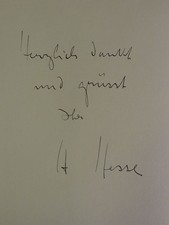 Herzlich dankt
und grüsst
Ihr
H Hesse